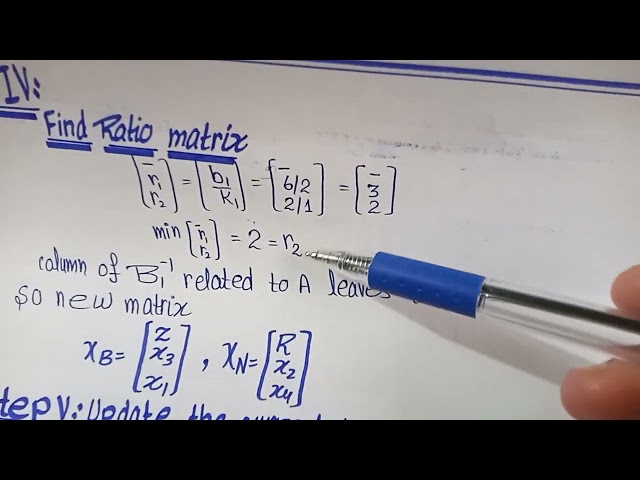 IV:
Find Ratio matrix
[- r₁ r₂] = [- b₁/K₁] = [- 6/2 2/1] = [- 3 2]
min [- r₁ r₂] = 2 = r₂
column of B₁⁻¹ related to A leaves
So new matrix
X_B = [Z x₃ x₁] , X_N = [R x₂ x₄]
Step V: Update the